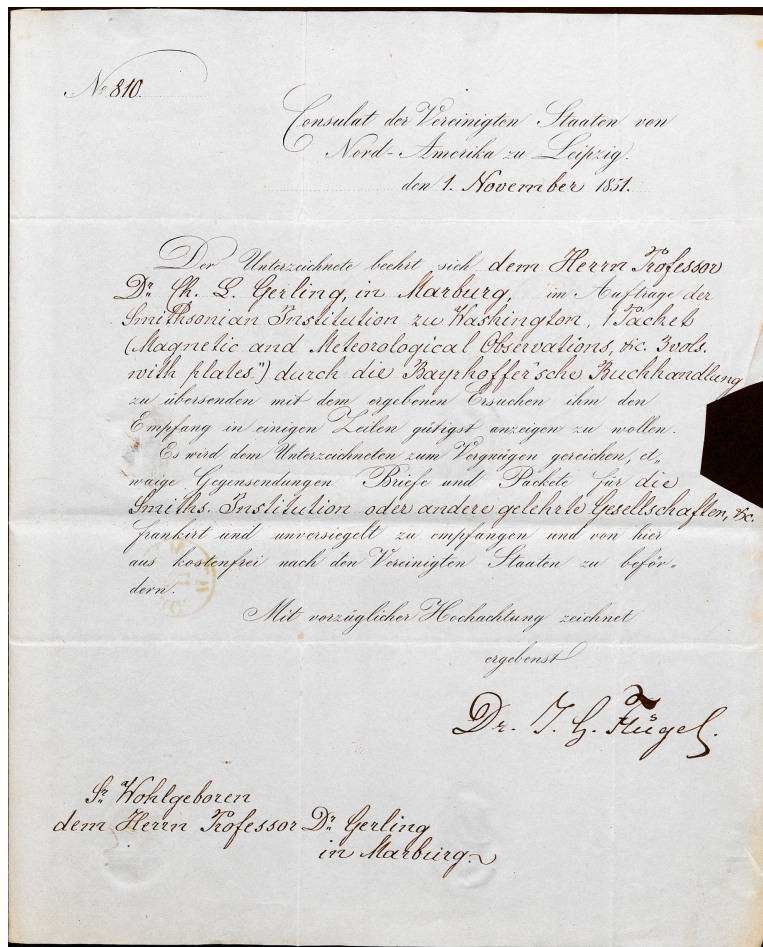 No. 810.
Consulat der Vereinigten Staaten von
Nord-Amerika zu Leipzig.
den 1. November 1851.
Der Unterzeichnete beehrt sich dem Herrn Professor
Dr. Ch. L. Gerling, in Marburg, im Auftrage der
Smithsonian Institution zu Washington, 1 Packet
(Magnetic and Meteorological Observations, &c. 3 vols.
with plates.") durch die Bayrhoffer'sche Buchhandlung
zu übersenden mit dem ergebenen Ersuchen ihm den
Empfang in einigen Zeilen gütigst anzeigen zu wollen.
Es wird dem Unterzeichneten zum Vergnügen gereichen, et„
waige Gegensendungen Briefe und Packete für die
Smiths. Institution oder andere gelehrte Gesellschaften, &c.
frankirt und unversiegelt zu empfangen und von hier
aus kostenfrei nach den Vereinigten Staaten zu beför„
dern.
Mit vorzüglicher Hochachtung zeichnet
ergebenst
Dr. J. G. Flügel.
Sr. Wohlgeboren
dem Herrn Professor Dr. Gerling
in Marburg.